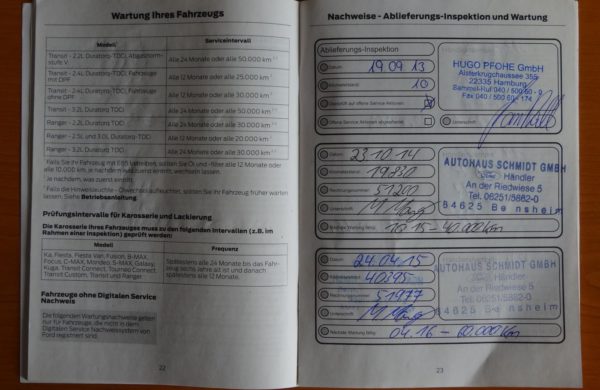 Wartung Ihres Fahrzeugs
Modell Serviceintervall
Transit - 2.2L Duratorq-TDCi, Abgasnorm-
stufe V. Alle 24 Monate oder alle 50.000 km
Transit - 2.4L Duratorq-TDCi, Fahrzeuge
mit DPF Alle 12 Monate oder alle 25.000 km
Transit - 2.4L Duratorq-TDCi, Fahrzeuge
ohne DPF Alle 12 Monate oder alle 30.000 km
Transit - 3.2L Duratorq-TDCi Alle 24 Monate oder alle 50.000 km
Ranger - 2.2L Duratorq-TDCi Alle 24 Monate oder alle 30.000 km
Ranger - 2.5L und 3.0L Duratorq-TDCi Alle 12 Monate oder alle 20.000 km
Ranger - 3.2L Duratorq-TDCi Alle 24 Monate oder alle 30.000 km
Falls Sie Ihr Fahrzeug mit E85 betreiben, sollten Sie Öl und -filter alle 12 Monate oder
alle 10.000 km, je nachdem was zuerst eintritt, wechseln lassen.
Je nachdem, was zuerst eintritt.
Falls die Hinweisleuchte - Ölwechsel aufleuchtet, sollten Sie Ihr Fahrzeug früher warten
lassen. Siehe Betriebsanleitung.
Prüfungsintervalle für Karosserie und Lackierung
Die Karosserie Ihres Fahrzeuges muss zu den folgenden Intervallen (z.B. im
Rahmen einer Inspektion) geprüft werden:
Modell Frequenz
Ka, Fiesta, Fiesta Van, Fusion, B-MAX,
Focus, C-MAX, Mondeo, S-MAX, Galaxy,
Kuga, Transit Connect, Tourneo Connect,
Transit Custom, Transit und Ranger.
Spätestens alle 24 Monate bis das Fahr-
zeug sechs Jahre alt ist und danach
spätestens alle 12 Monate.
Fahrzeuge ohne Digitalen Service
Nachweis
Die folgenden Wartungsnachweise gelten
nur für Fahrzeuge, die nicht in dem
Digitalen Service Nachweissystem von
Ford registriert sind.
22
Nachweise - Ablieferungs-Inspektion und Wartung
Ablieferungs-Inspektion
Datum 19 09 13
Kilometerstand 10
Überprüft auf offene Service Aktionen
Offene Service Aktionen abgearbeitet
Unterschrift
HUGO PFOHE GmbH
Alsterkrugchaussee 355
22335 Hamburg
Sammel-Ruf 040 / 500 60 - 0
Fax 040 / 500 60 - 174
Datum 23 10 14
Kilometerstand 19830
Rechnungsnummer 51200
Unterschrift
Nächste Wartung fällig 10.15 - 40.000 Km
AUTOHAUS SCHMIDT GMBH
Händler
An der Riedwiese 5
Tel. 06251/5882-0
64625 Bensheim
Datum 24.04.15
Kilometerstand 40395
Rechnungsnummer 51977
Unterschrift
Nächste Wartung fällig 04.16 - 60.000 Km
AUTOHAUS SCHMIDT GMBH
Händler
An der Riedwiese 5
Tel. 06251/5882-0
64625 Bensheim
23